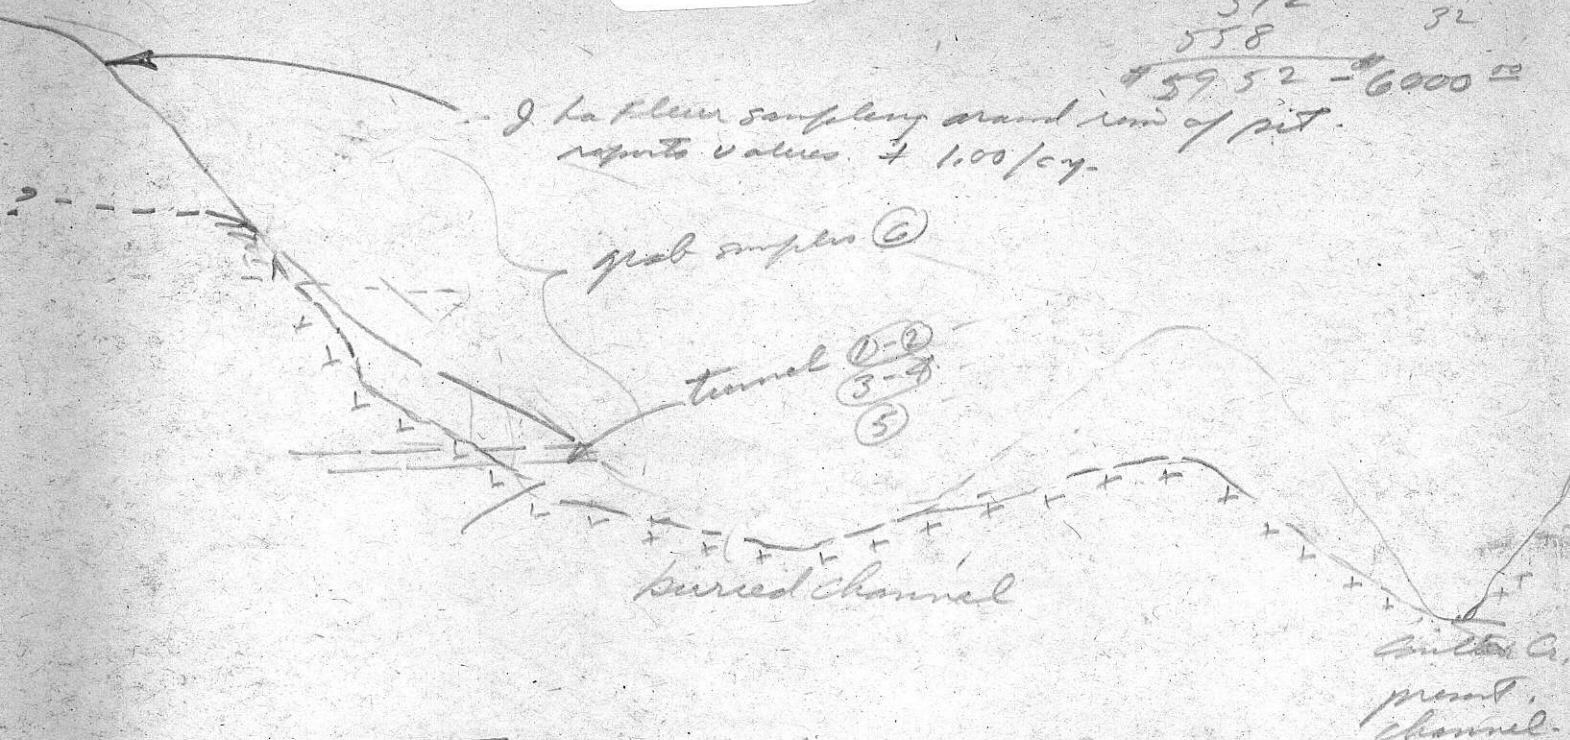 32
558
$5952 - $6000 00
J LaFleur sampling around rim of pit.
reports values ± 1.00/cy.
?
grab samples 6
tunnel 1-2
3-4
5
buried channel
Cr.
present
channel.